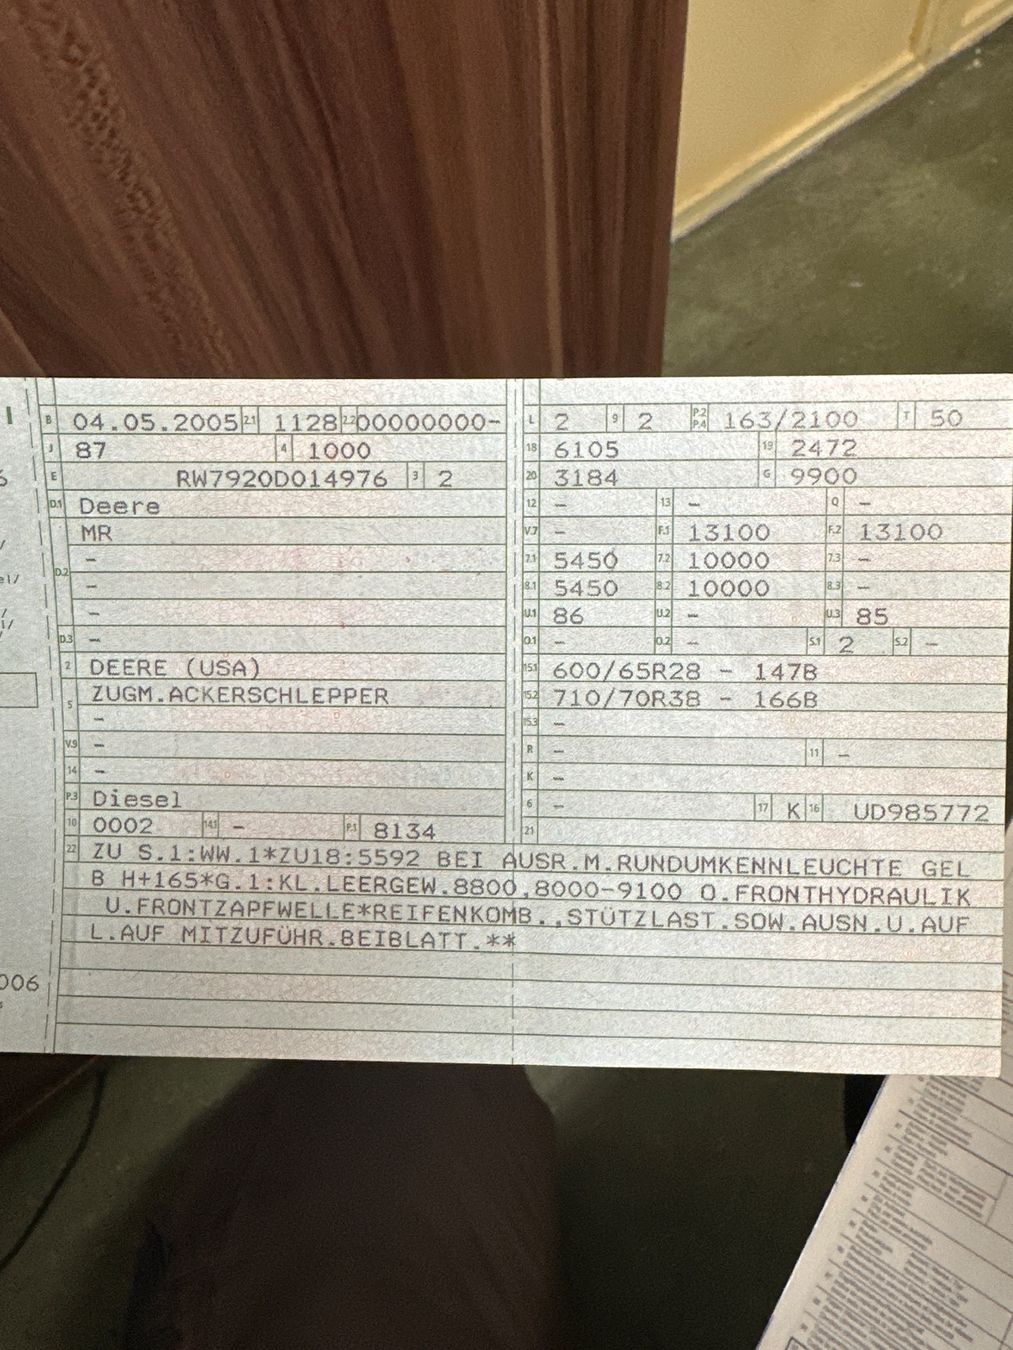 B 04.05.2005 2.1 1128 2.2 00000000-
J 87 4 1000
E RW7920D014976 3 2
D.1 Deere
MR
-
D.2 -
-
D.3 -
2 DEERE (USA)
5 ZUGM.ACKERSCHLEPPER
-
V.9 -
14 -
P.3 Diesel
10 0002 14.1 - P.1 8134
L 2 9 2 P.2 P.4 163/2100 T 50
18 6105 19 2472
20 3184 G 9900
12 - 13 - Q -
V.7 - F.1 13100 F.2 13100
7.1 5450 7.2 10000 7.3 -
8.1 5450 8.2 10000 8.3 -
U.1 86 U.2 - U.3 85
O.1 - O.2 - S.1 2 S.2 -
15.1 600/65R28 - 147B
15.2 710/70R38 - 166B
15.3 -
R - 11 -
K -
6 - 17 K 16 UD985772
21
22 ZU S.1:WW.1*ZU18:5592 BEI AUSR.M.RUNDUMKENNLEUCHTE GEL
B H+165*G.1:KL.LEERGEW.8800,8000-9100 O.FRONTHYDRAULIK
U.FRONTZAPFWELLE*REIFENKOMB.,STÜTZLAST.SOW.AUSN.U.AUF
L.AUF MITZUFÜHR.BEIBLATT.**
006